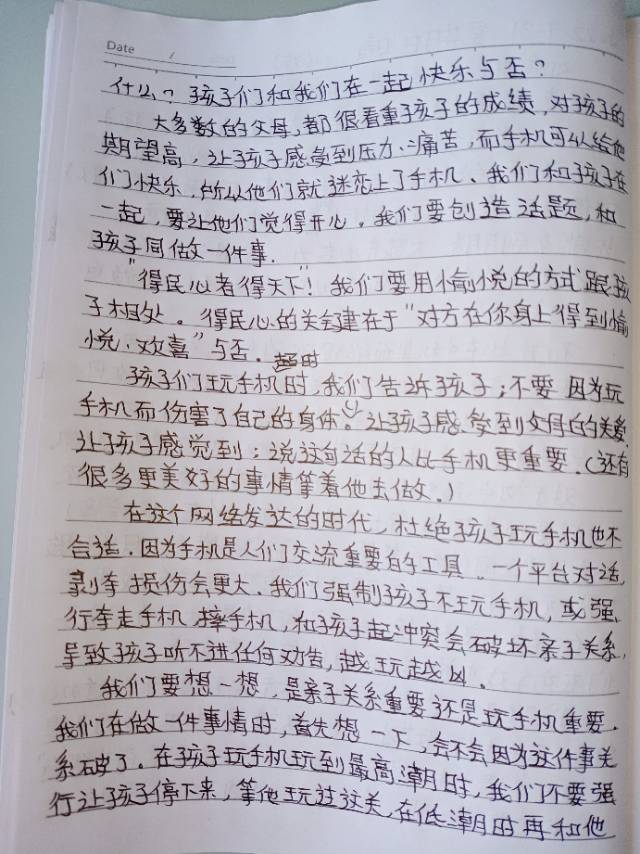 Date
什么？孩子们和我们在一起快乐与否？
大多数的父母，都很看重孩子的成绩，对孩子的
期望高，让孩子感受到压力、痛苦，而手机可以给他
们快乐，所以他们就迷恋上了手机、我们和孩子在
一起，要让他们觉得开心。我们要创造话题，和
孩子同做一件事.
"得民心者得天下"！我们要用愉悦的方式跟孩
子相处。得民心的关键在于"对方在你身上得到愉
悦、欢喜"与否.
孩子们玩手机时，我们告诉孩子；不要因为玩
手机而伤害了自己的身体。让孩子感觉到父母的关爱，
让孩子感觉到；说这句话的人比手机更重要.(还有
很多更美好的事情等着他去做.)
在这个网络发达的时代，杜绝孩子玩手机也不
合适.因为手机是人们交流重要的工具。一个平台对话，
剥夺损伤会更大.我们强制孩子不玩手机，或强
行夺走手机，摔手机，和孩子起冲突会破坏亲子关系，
导致孩子听不进任何劝告，越玩越凶.
我们要想一想，是亲子关系重要还是玩手机重要.
我们在做一件事情时，首先想一下，会不会因为这件事关
系破了.在孩子玩手机玩到最高潮时，我们不要强
行让孩子停下来，等他玩过这关，在低潮时再和他